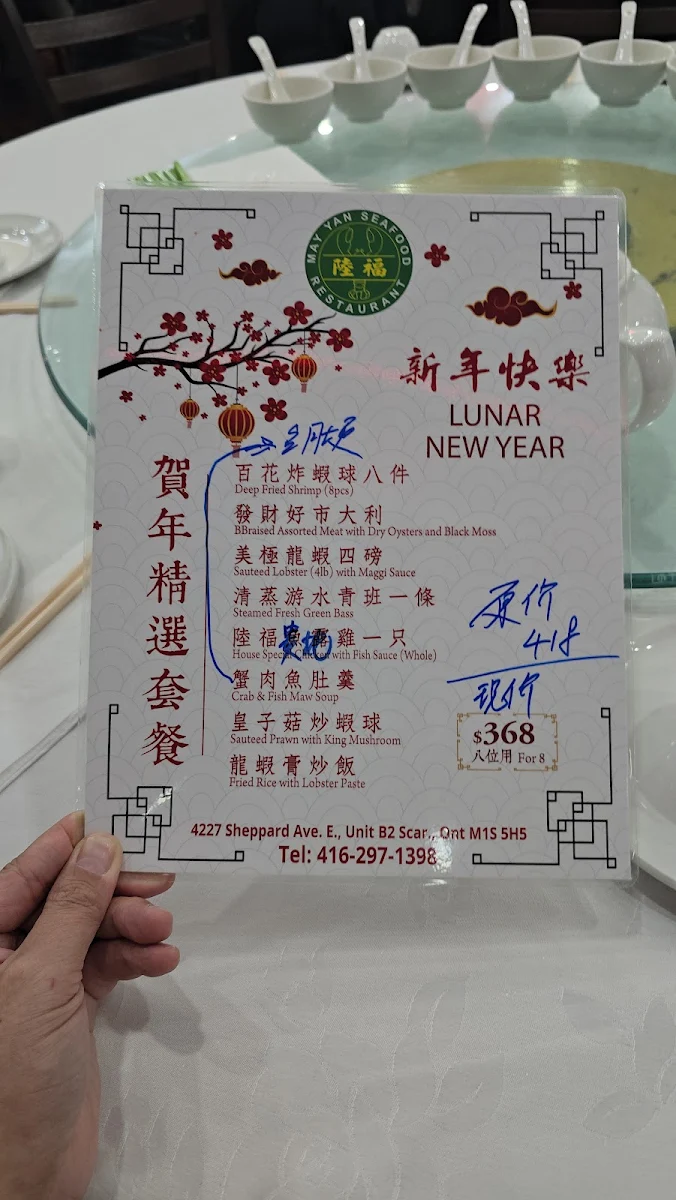 MAY YAN SEAFOOD
陸福
RESTAURANT
新年快樂
LUNAR
NEW YEAR
賀年精選套餐
百花炸蝦球八件
Deep Fried Shrimp (8pcs)
發財好市大利
BBraised Assorted Meat with Dry Oysters and Black Moss
美極龍蝦四磅
Sauteed Lobster (4lb) with Maggi Sauce
清蒸游水青班一條
Steamed Fresh Green Bass
陸福魚露雞一只
House Special Chicken with Fish Sauce (Whole)
蟹肉魚肚羹
Crab & Fish Maw Soup
皇子菇炒蝦球
Sauteed Prawn with King Mushroom
龍蝦膏炒飯
Fried Rice with Lobster Paste
原价
418
现价
$368
八位用 For 8
4227 Sheppard Ave. E., Unit B2 Scar., Ont M1S 5H5
Tel: 416-297-1398